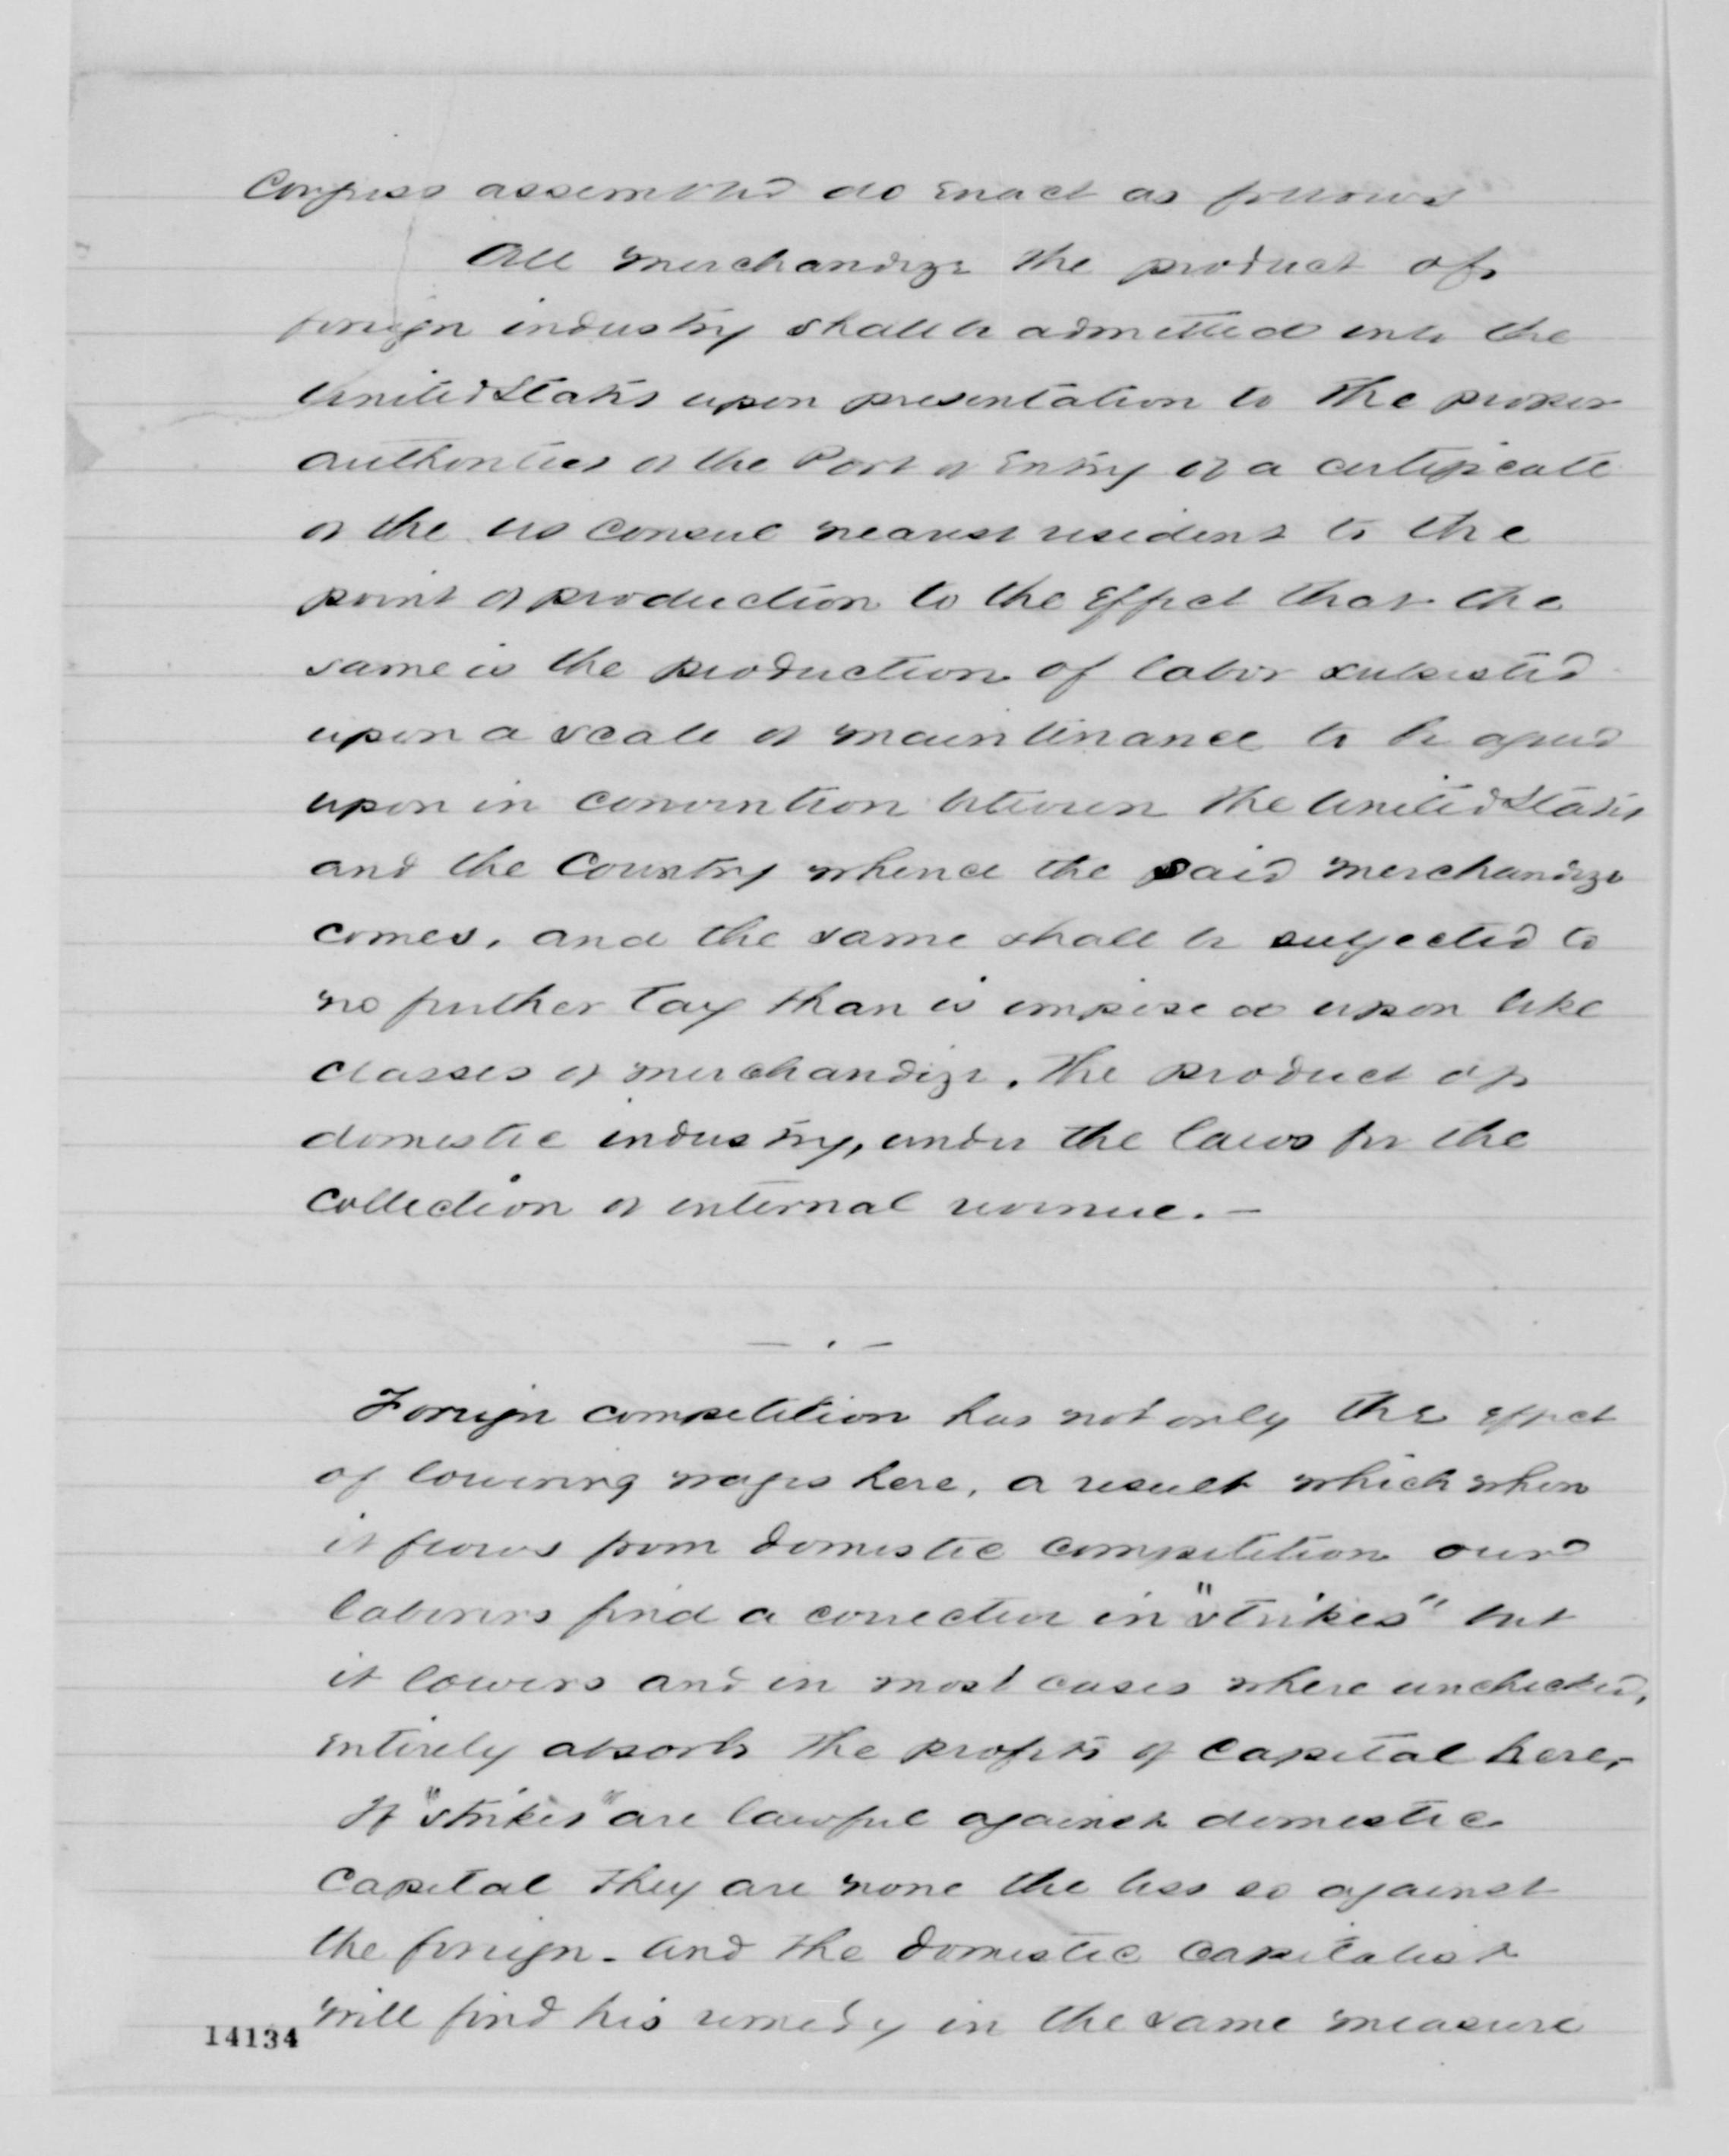 Congress assembled do enact as follows
All merchandize the product of
foreign industry shall be admitted into the
United States upon presentation to the proper
authorities of the Port of Entry of a certificate
of the US Consul nearest resident to the
point of production to the effect that the
same is the production of labor subsisted
upon a scale of maintinance to be agreed
upon in convention between the United States
and the Country whence the said merchandize
comes, and the same shall be subjected to
no further tax than is imposed upon like
classes of merchandize, the product of
domestic industry, under the laws for the
collection of internal revenue. —
— . —
Foreign competition has not only the effect
of lowering wages here, a result which when
it flows from domestic competition our
laborers find a corrective in "strikes" but
it lowers and in most cases where unchecked,
entirely absorbs the profits of capital here,
If "strikes" are lawful against domestic
Capital they are none the less so against
the foreign - and the domestic capitalist
will find his remedy in the same measure
14134